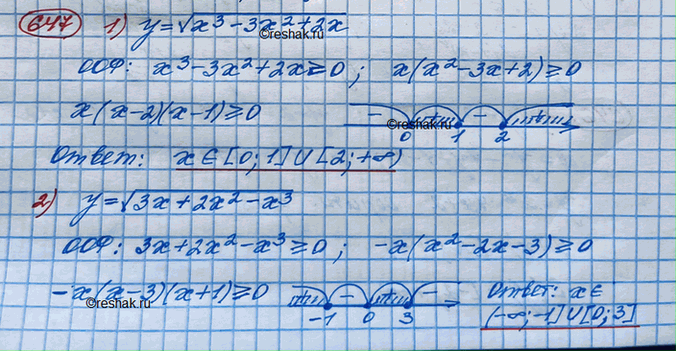 647 1) y=√x³-3x²+2x
©reshak.ru
ООФ: x³-3x²+2x≥0; x(x²-3x+2)≥0
x(x-2)(x-1)≥0
- + - +
©reshak.ru
0 1 2
Ответ: x∈[0;1]∪[2;+∞)
2) y=√3x+2x²-x³
ООФ: 3x+2x²-x³≥0; -x(x²-2x-3)≥0
-x(x-3)(x+1)≥0
©reshak.ru
+ - + -
-1 0 3
Ответ: x∈
(-∞;-1]∪[0;3]